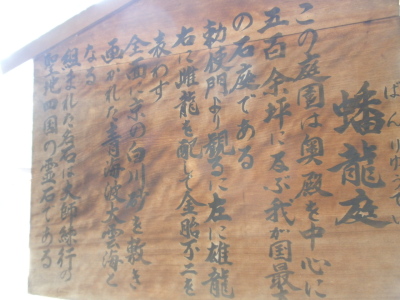 蟠龍庭
ばんりゅうてい
この庭園は奥殿を中心に
五百余坪に及ぶ我が国最
の石庭である
勅使門より観るに左に雄龍
右に雌龍を配して金胎不二を
表わす
全面に京の白川砂を敷き
画かれた青海波大雲海と
なる
組まれた岩石は大師縁行の
聖地四国の霊石である